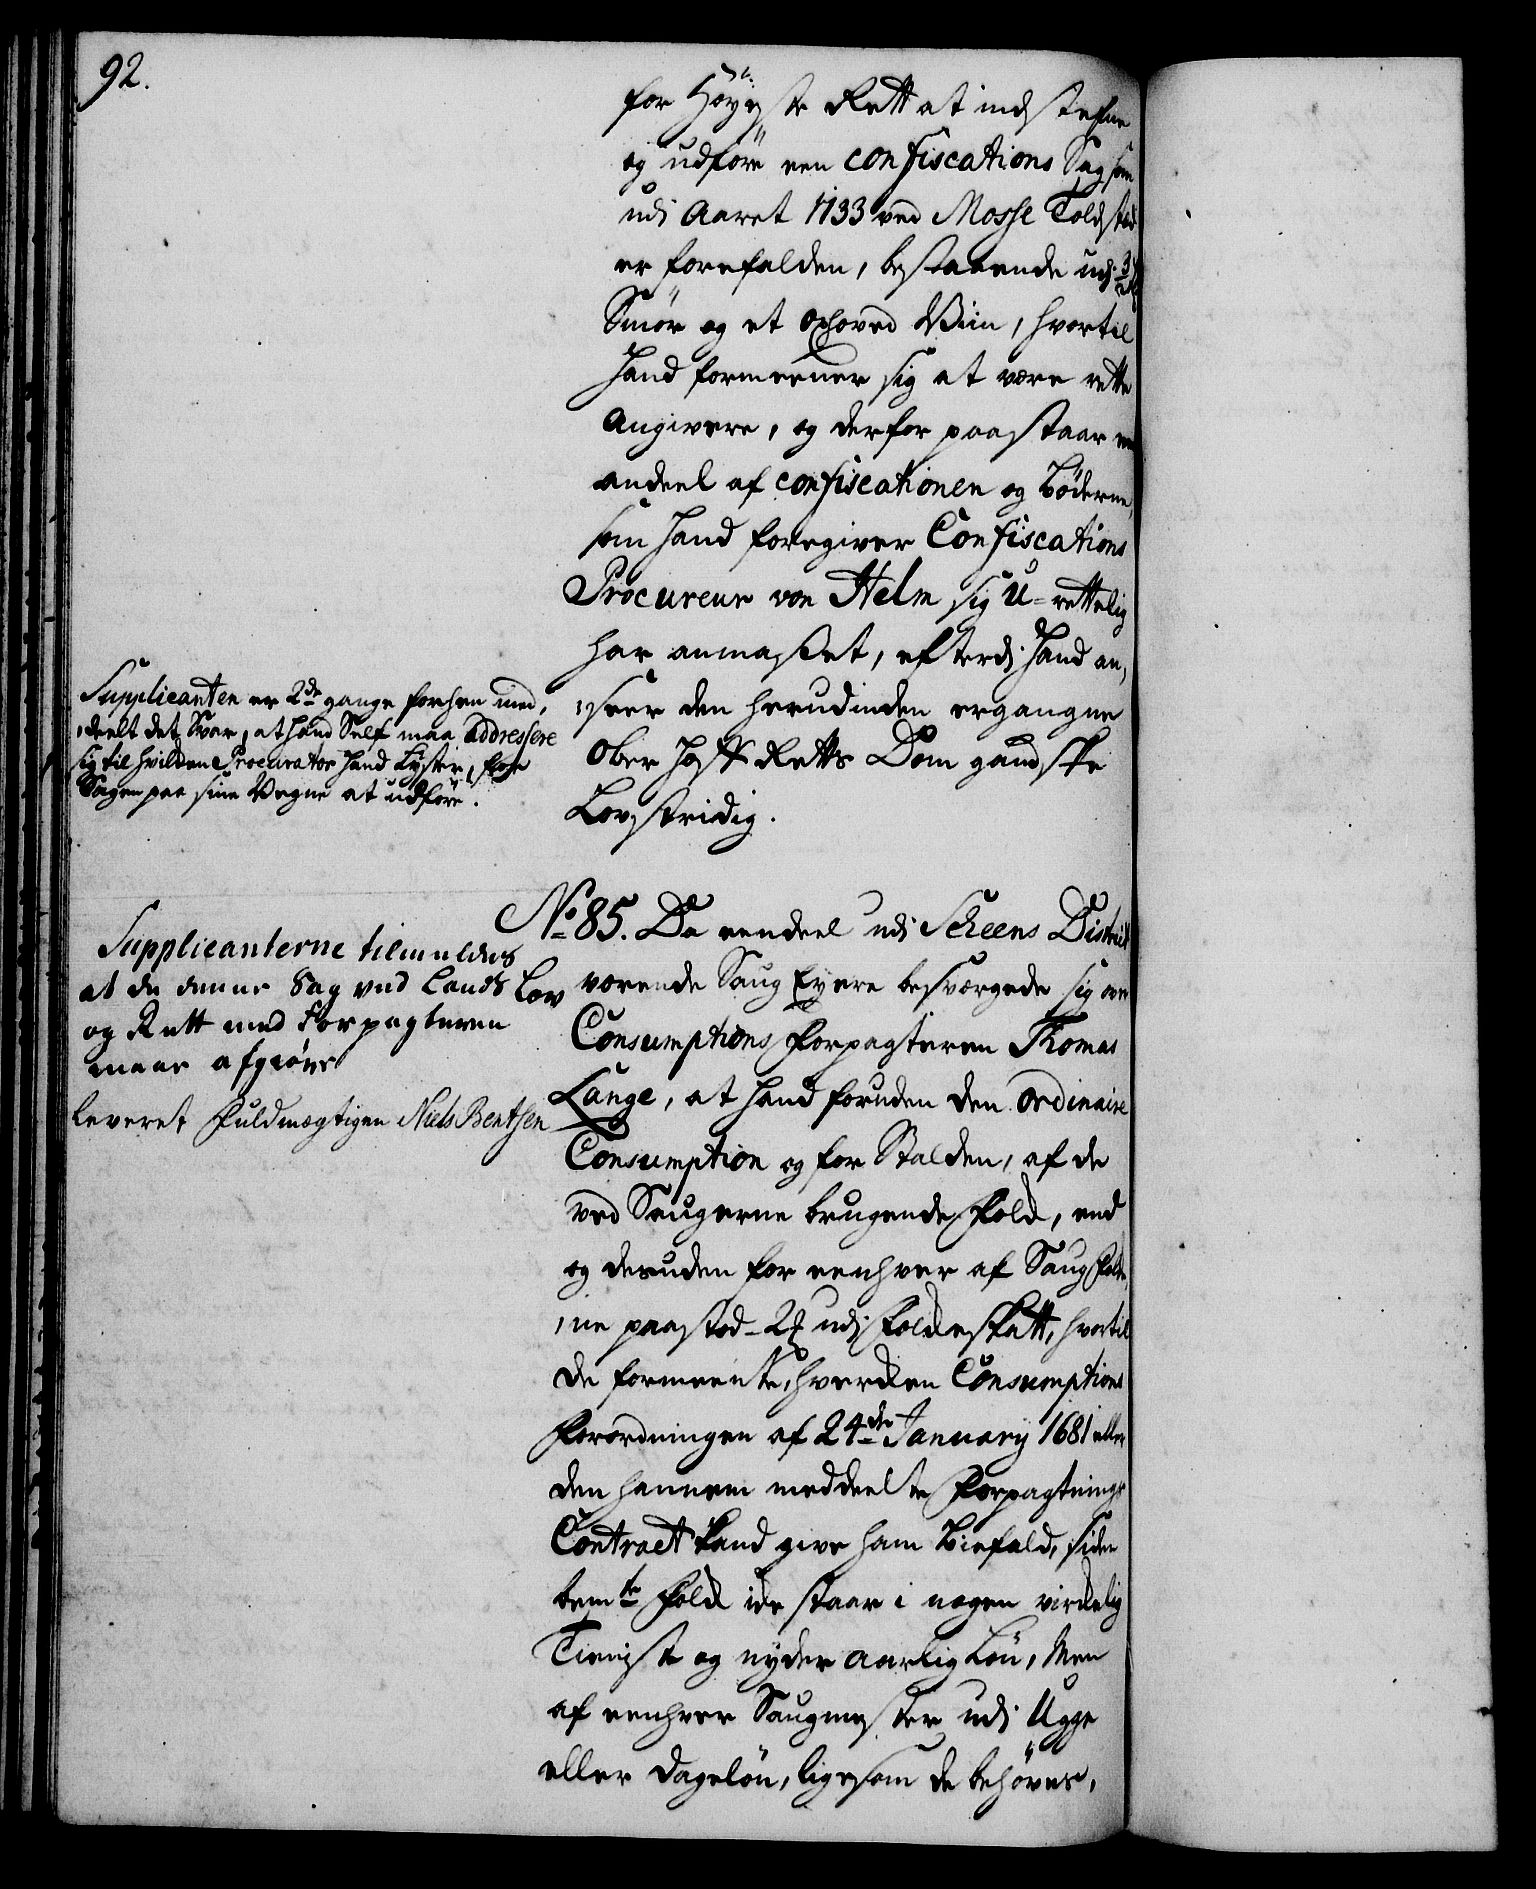 92.
for Høyste Rett at indstefne
og udføre een confiscations Sag som
udi Aaret 1733 ved Mosse Toldsted
er forefalden, bestaaende udi 3
Smør og et Oxhoved Viin, hvortil
Hand formeener sig at være rette
Angivere, og derfor paastaar een
andeel af confiscationen og Bøderne,
som Hand foregiver Confiscations
Procureur von Helm sig U-rettelig
har anmasset, efterdi Hand an,
,seer den herudinden ergangne
Ober Hoff Retts Dom gandske
Lovstridig.
Supplicanten er 2de gange forhen med,
,deelt det Svar, at Hand Self maa addressere
sig til hvilken Procurator Hand Lyster, for
Sagen paa sine Vegne at udføre.
No 85. Da eendeel udi Scheens District
værende Saug Eyere besværgede sig over
Consumptions Forpagteren Thomas
Lange, at Hand foruden den ordinaire
Consumption og for Stalden, af de
ved Saugerne brugende Folk, end
og desuden for eenhver af Saug Folke,
,ne paastod 2 udi Folkeskatt, hvortil
de formeente, hverken Consumptions
Forordningen af 24de January 1681 eller
den hannem meddeelte Forpagtnings
Contract kand give ham Biefald, siden
bemte Folk icke staar i nogen virkelig
Tieniste og nyder aarlig Løn, Men
af eenhver Saugmester udi Uge
eller Dageløn, ligesom de behøves,
Supplicanterne tilmeldes
at de denne Sag ved Lands Lov
og Rett med Forpagteren
maae afgiøre
leveret Fuldmægtigen Niels Bentsen